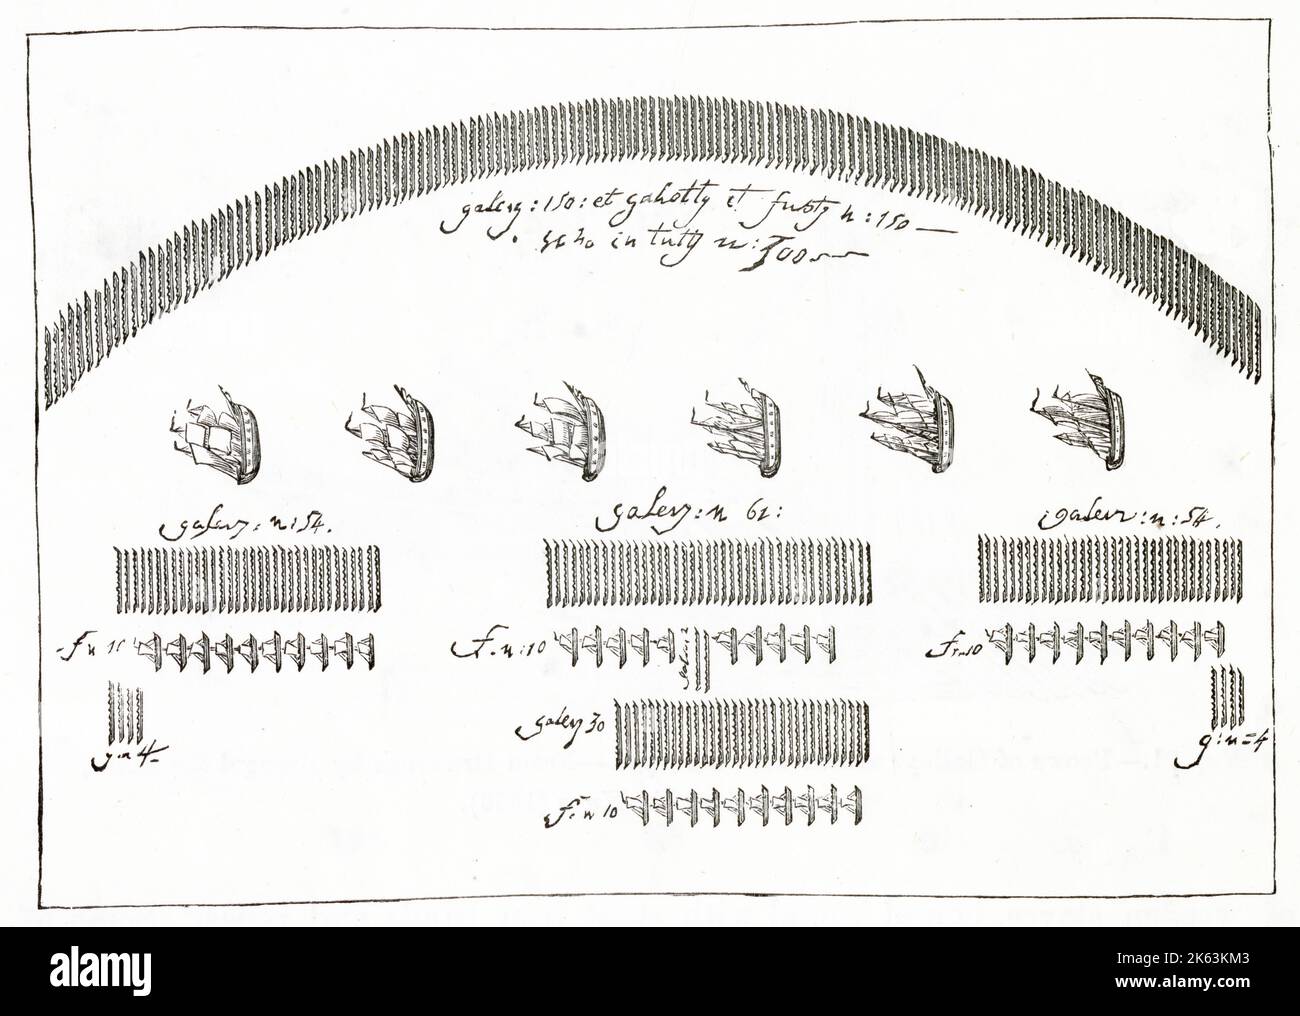 galerz : 150 : et galiotty et fusty n : 150 —
sono in tutty n : 300
galerz : n : 54.
galerz : n 61 :
galerz : n : 54.
f n 10
F. n : 10
galerz 2
F. n 10
g : n 4
galerz 30
g : n = 4
f. n 10
alamy
Image ID: 2K63KM3
www.alamy.com